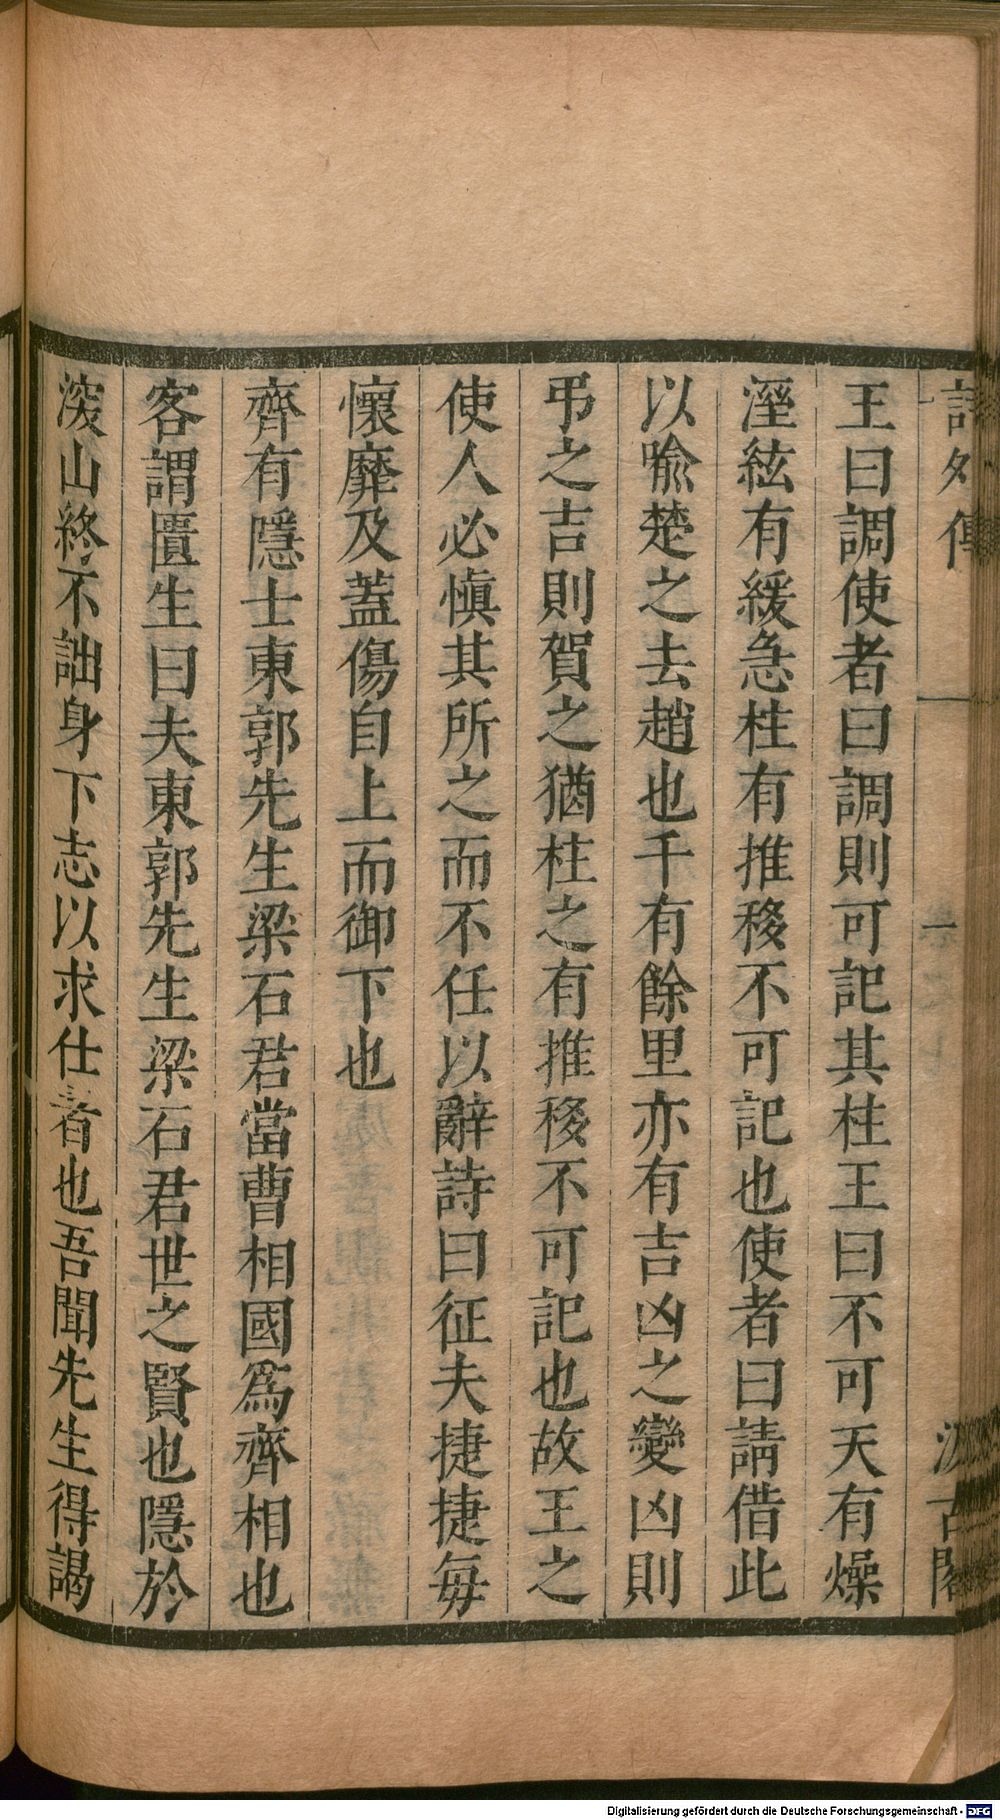 詩外傳
一
汲古閣
王曰調使者曰調則可記其柱王曰不可天有燥
溼絃有緩急柱有推移不可記也使者曰請借此
以喩楚之去趙也千有餘里亦有吉凶之變凶則
弔之吉則賀之猶柱之有推移不可記也故王之
使人必愼其所之而不任以辭詩曰征夫捷捷每
懷靡及蓋傷自上而御下也
齊有隱士東郭先生梁石君當曹相國爲齊相也
客謂匱生曰夫東郭先生梁石君世之賢也隱於
深山終不詘身下志以求仕者也吾聞先生得謁
Digitalisierung gefördert durch die Deutsche Forschungsgemeinschaft - DFG